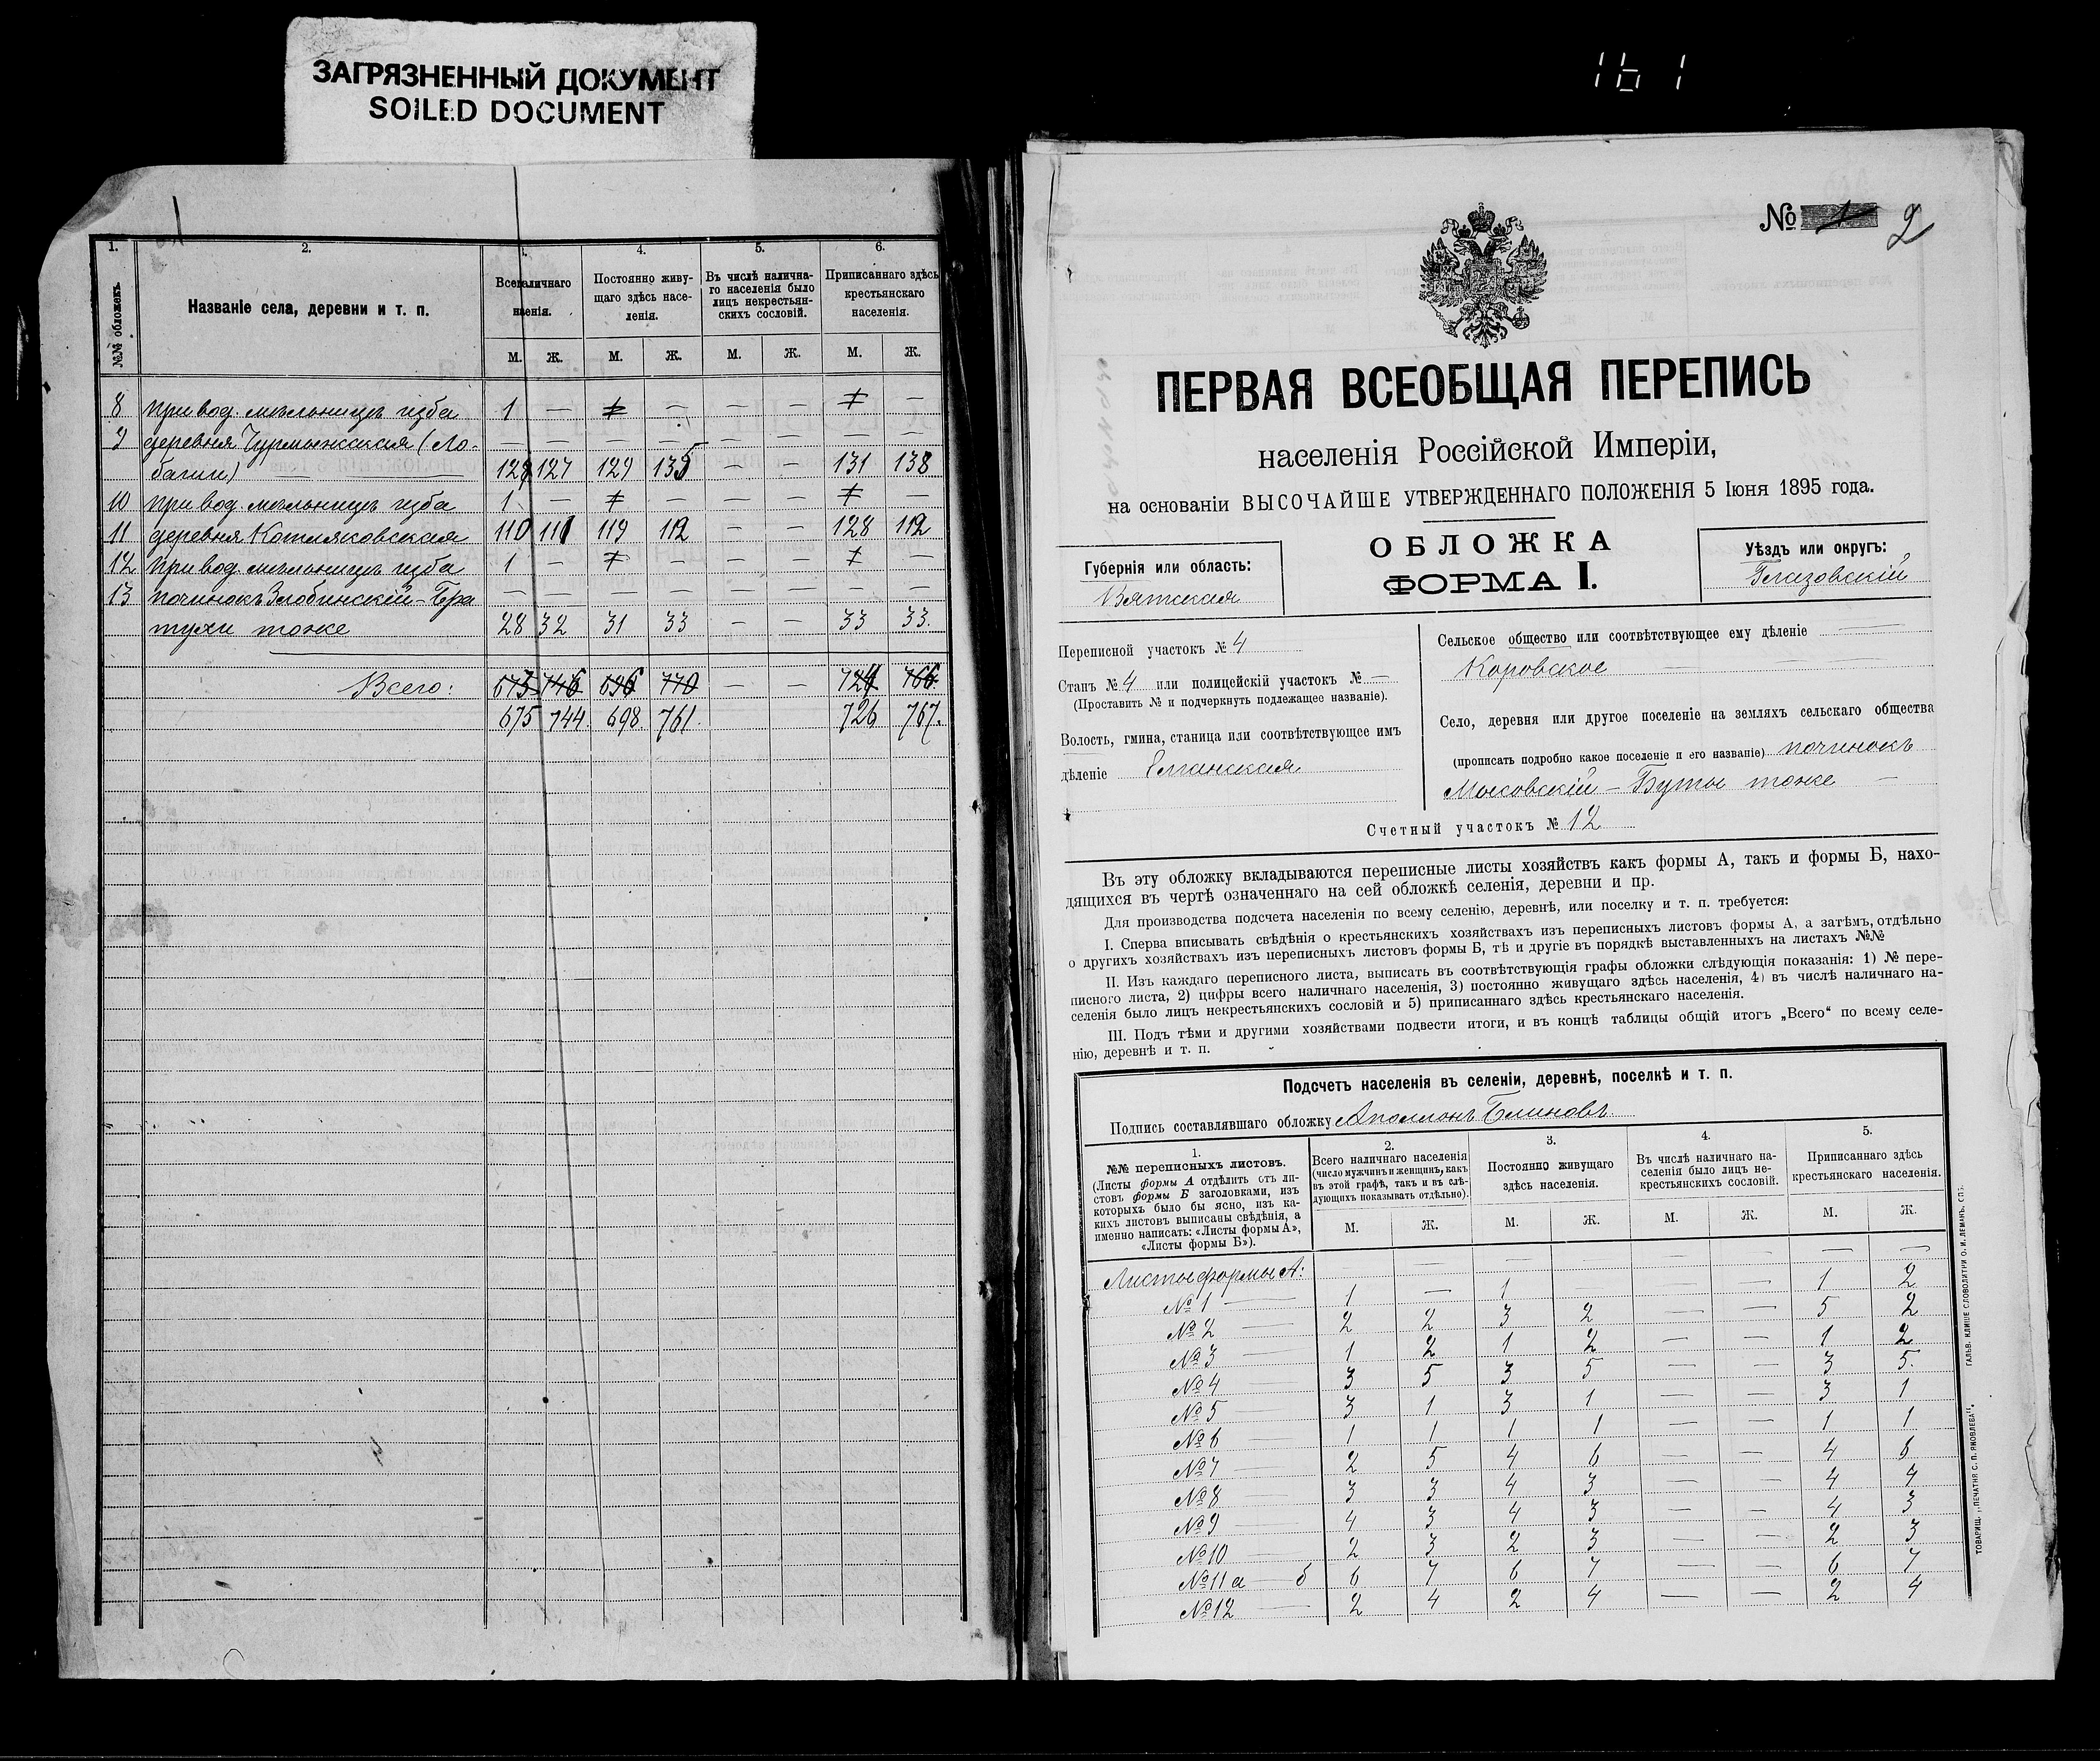 ЗАГРЯЗНЕННЫЙ ДОКУМЕНТ
SOILED DOCUMENT
161
1. 2. 4. 5. 6.
№№ обложекъ.
Названіе села, деревни и т. п.
Всего наличнаго населенія.
Постоянно живущаго здѣсь населенія.
Въ числѣ наличнаго населенія было лицъ некрестьянскихъ сословій.
Приписаннаго здѣсь крестьянскаго населенія.
М. Ж. М. Ж. М. Ж. М. Ж.
8 при вод. мельницѣ изба 1 — — — — —
9 деревня Чурмыжская (Ло- — — — — — — — —
багии) 127 129 135 — — 131 138
10 при вод. мельницѣ изба 1 — — — — —
11 деревня Котляковская 110 111 119 112 — — 128 112
12 При вод. мельницѣ изба 1 — — — — —
13 починокъ Злобинскій — — — — — — — — —
тоже 28 32 31 33 — — 33 33.
Всего: 673 746 696 770 — — 724 766.
675 744 698 761. 726 767.
№ 1 2
ПЕРВАЯ ВСЕОБЩАЯ ПЕРЕПИСЬ
населенія Россійской Имперіи,
на основаніи ВЫСОЧАЙШЕ УТВЕРЖДЕННАГО ПОЛОЖЕНІЯ 5 Іюня 1895 года.
ОБЛОЖКА
ФОРМА I.
Губернія или область:
Вятская
Уѣздъ или округъ:
Глазовскій
Переписной участокъ № 4
Станъ № 4 или полицейскій участокъ № —
(Проставить № и подчеркнуть подлежащее названіе).
Волость, гмина, станица или соотвѣтствующее имъ
дѣленіе Еланская
Сельское общество или соотвѣтствующее ему дѣленіе —
Коровское — — —
Село, деревня или другое поселеніе на земляхъ сельскаго общества
(прописать подробно какое поселеніе и его названіе) починокъ
Мысовскій — Буты тоже —
Счетный участокъ № 12
Въ эту обложку вкладываются переписные листы хозяйствъ какъ формы А, такъ и формы Б, нахо-
дящихся въ чертѣ означеннаго на сей обложкѣ селенія, деревни и пр.
Для производства подсчета населенія по всему селенію, деревнѣ, или поселку и т. п. требуется:
I. Сперва вписывать свѣдѣнія о крестьянскихъ хозяйствахъ изъ переписныхъ листовъ формы А, а затѣмъ, отдѣльно
о другихъ хозяйствахъ изъ переписныхъ листовъ формы Б, тѣ и другіе въ порядкѣ выставленныхъ на листахъ №№
II. Изъ каждаго переписного листа, выписать въ соотвѣтствующія графы обложки слѣдующія показанія: 1) № пере-
писного листа, 2) цифры всего наличнаго населенія, 3) постоянно живущаго здѣсь населенія, 4) въ числѣ наличнаго на-
селенія было лицъ некрестьянскихъ сословій и 5) приписаннаго здѣсь крестьянскаго населенія.
III. Подъ тѣми и другими хозяйствами подвести итоги, и въ концѣ таблицы общій итогъ „Всего“ по всему селе-
нію, деревнѣ и т. п.
Подсчетъ населенія въ селеніи, деревнѣ, поселкѣ и т. п.
Подпись составлявшаго обложку Аполлонъ Блиновъ
1.
№№ переписныхъ листовъ.
(Листы формы А отдѣлить отъ ли-
стовъ формы Б заголовками, изъ
которыхъ было бы ясно, изъ ка-
кихъ листовъ выписаны свѣдѣнія, а
именно написать: «Листы формы А»,
«Листы формы Б»).
2.
Всего наличнаго населенія
(число мужчинъ и женщинъ, какъ
въ этой графѣ, такъ и въ слѣ-
дующихъ показывать отдѣльно).
3.
Постоянно живущаго
здѣсь населенія.
4.
Въ числѣ наличнаго на-
селенія было лицъ не-
крестьянскихъ сословій.
5.
Приписаннаго здѣсь
крестьянскаго населенія.
М. Ж. М. Ж. М. Ж. М. Ж.
Листы формы А: — — — — — — — —
№ 1 — 1 — 1 — — — 1 2
№ 2 — 2 2 3 2 — — 5 2
№ 3 — 1 2 1 2 — — 1 2
№ 4 — 3 5 3 5 — — 3 5.
№ 5 — 3 1 3 1 — — 3 1
№ 6 — 1 1 1 1 1 1
№ 7 — 2 5 4 6 — — 4 6
№ 8 — 3 3 4 3 — — 4 4
№ 9 — 4 3 4 3 — — 4 3
№ 10 — 2 3 2 3 — — 2 3
№ 11 а — б 6 7 6 7 — — 6 7
№ 12 — 2 4 2 4 — — 2 4
ГАЛЬВ. КЛИШЕ СЛОВОЛИТНИ О. И. ЛЕМАНЪ, СПБ.
ТОВАРИЩ. „ПЕЧАТНЯ С. П. ЯКОВЛЕВА“.